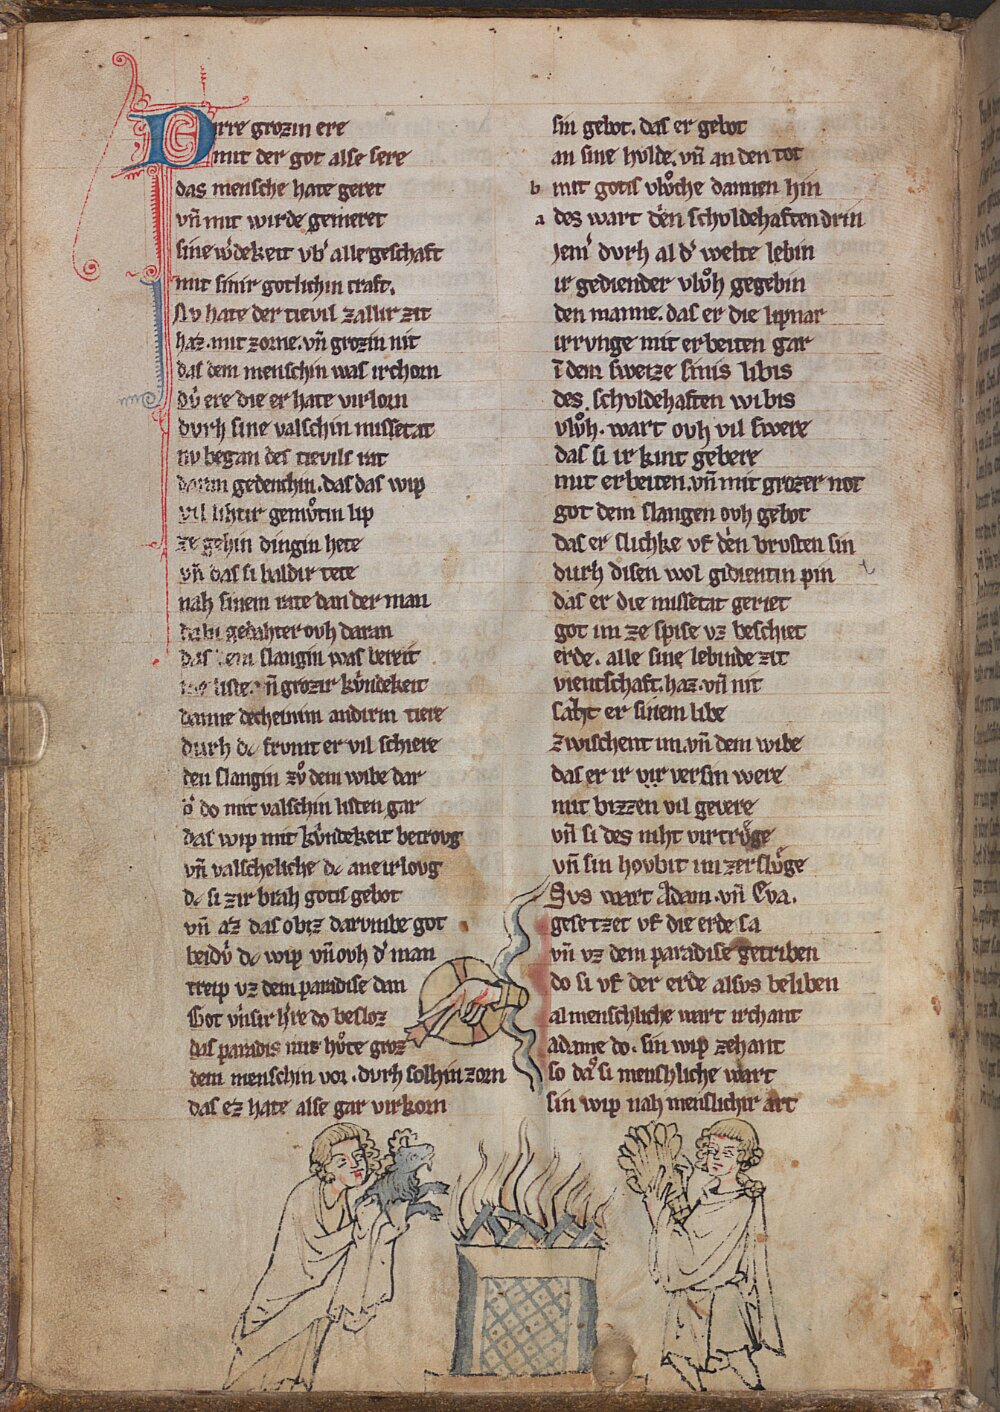 Dirre grozin ere
mit der got alse sere
das mensche hate geret
vn̄ mit wirde gemeret
sine w̾dekeit vb̾ alle geschaft
mit sinir gotlichin craft.
Nv hate der tievil zallir zit
haz. mit zorne. vn̄ grozin nit
das dem menschin was irchorn
dv́ ere die er hate virlorn
dvrh sine valschin missetat
nv began des tievils rat
darin gedenchin. das das wip
vil lihtir gemv̊tin lip
ze gehin dingin hete
vn̄ das si baldir tete
nah sinem rate dan der man
da bi gedahter ovh daran
das dem slangin was bereit
liste. vn̄ grozir kv́ndekeit
danne decheinim andirm tiere
durh dc frvmt er vil schiere
den slangin zv̊ dem wibe dar
d̾ do mit valschin listen gar
das wip mit kv́ndekeit betrovg
vn̄ valscheliche dc ane irlovg
dc si zir brah gotis gebot
vn̄ az das obiz darvmbe got
beidv́ dc wip vn̄ ovh d̾ man
treip vz dem paradise dan
Got vnsir h̾re do besloz
das paradis mit hv̊te groz
dem menschin vor. dvrh solhin zorn
das ez hate alse gar virkorn
sin gebot. das er gebot
an sine hvlde. vn̄ an den tot
b mit gotis vlv̊che dannen hin
a des wart den schvldehaften drin
Jem̾ dvrh al d̾ welte lebin
ir gediender vlv̊h gegebin
den manne. das er die lipnar
irrvnge mit erbeiten gar
in̄ dem sweize sinis libis
des schvldehaften wibis
vlv̊h. wart ovh vil swere
das si ir kint gebere
mit erbeiten. vn̄ mit grozer not
got dem slangen ovh gebot
das er slichke vf den brvsten sin
durh disen wol gidientin pin
das er die missetat geriet
got im ze spise vz beschiet
erde. alle sine lebinde zit
vientschaft. haz. vn̄ nit
saht er sinem libe
zwischent im. vn̄ dem wibe
das er ir vir versin were
mit bizzen vil gevere
vn̄ si des niht virtrv̊ge
vn̄ sin hovbit im zerslv̊ge
Svs wart Adam. vn̄ Eva.
gesetzet vf die erde sa
vn̄ vz dem paradise getriben
do si vf der erde alsvs beliben
al menschliche wart irchant
adame do. sin wip zehant
so da si menshliche wart
sin wip nah menslichir art